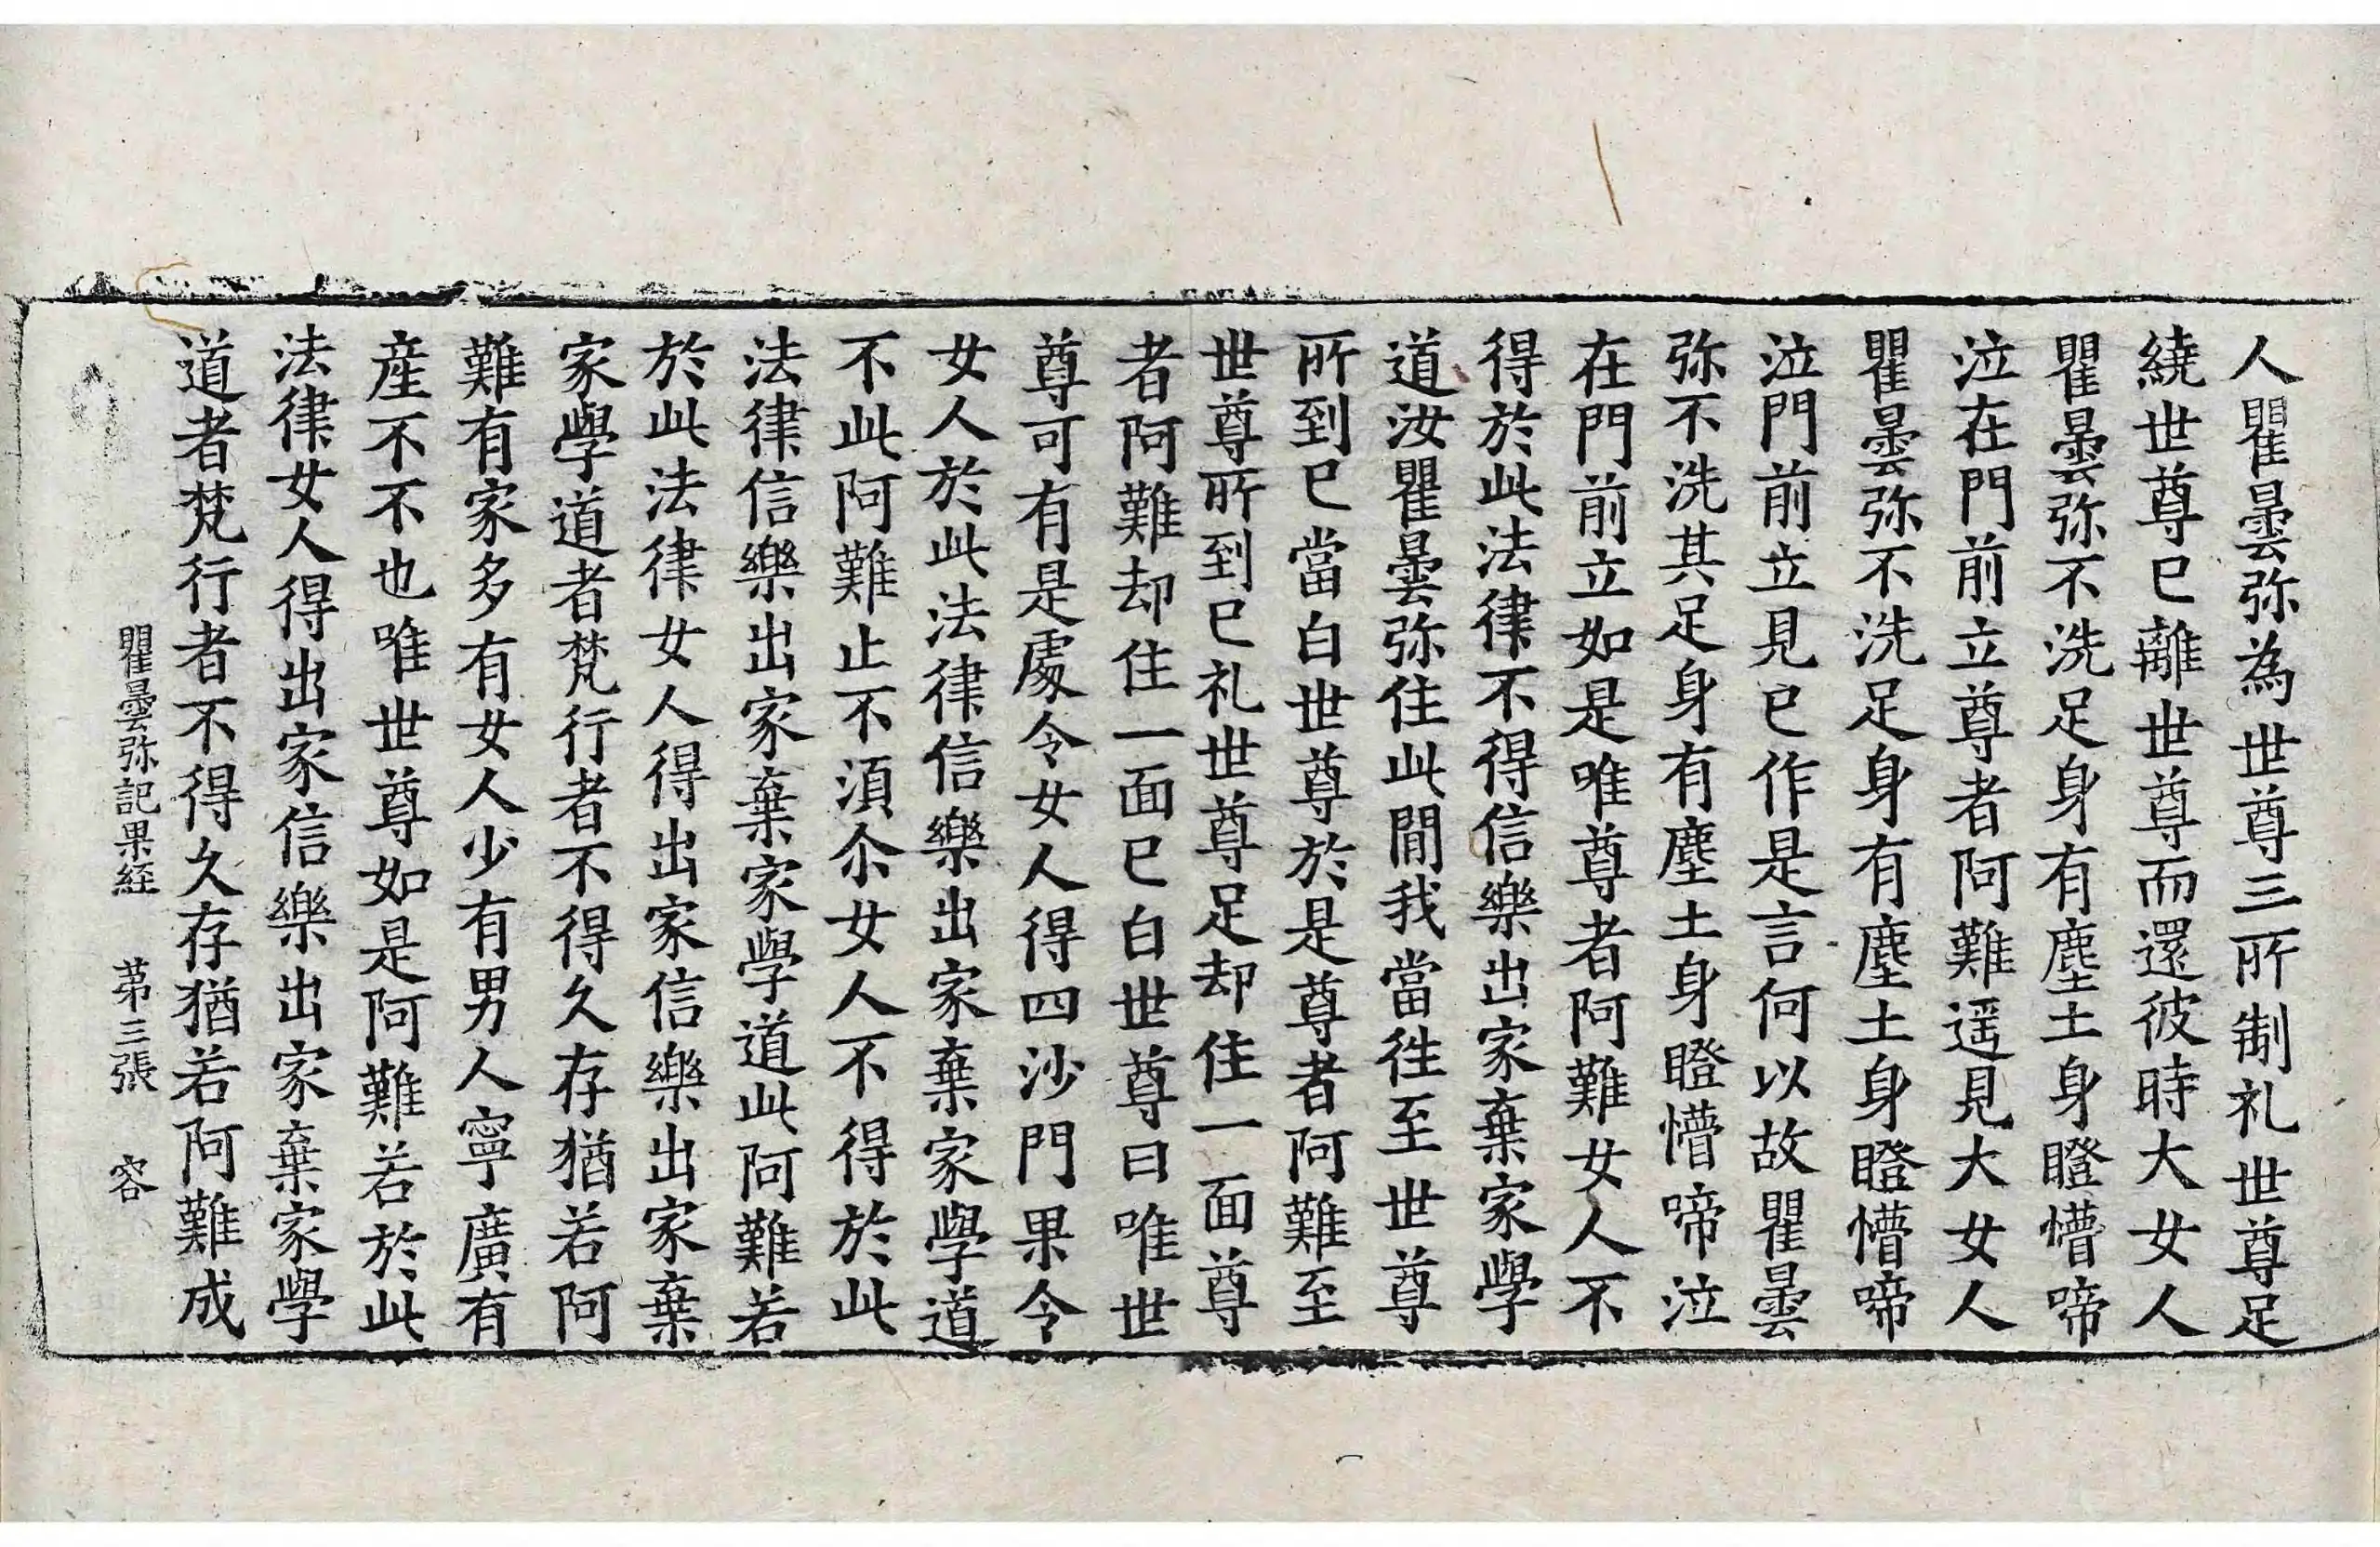 人瞿曇弥為世尊三所制礼世尊足
繞世尊已離世尊而還彼時大女人
瞿曇弥不洗足身有塵土身瞪懵啼
泣在門前立尊者阿難遥見大女人
瞿曇弥不洗足身有塵土身瞪懵啼
泣門前立見已作是言何以故瞿曇
弥不洗其足身有塵土身瞪懵啼泣
在門前立如是唯尊者阿難女人不
得於此法律不得信樂出家棄家學
道汝瞿曇弥住此間我當徃至世尊
所到已當白世尊於是尊者阿難至
世尊所到已礼世尊足却住一面尊
者阿難却住一面已白世尊曰唯世
尊可有是處令女人得四沙門果令
女人於此法律信樂出家棄家學道
不此阿難止不湏尒女人不得於此
法律信樂出家棄家學道此阿難若
於此法律女人得出家信樂出家棄
家學道者梵行者不得久存猶若阿
難有家多有女人少有男人寧廣有
産不不也唯世尊如是阿難若於此
法律女人得出家信樂出家棄家學
道者梵行者不得久存猶若阿難成
瞿曇弥記果経 苐三張 容